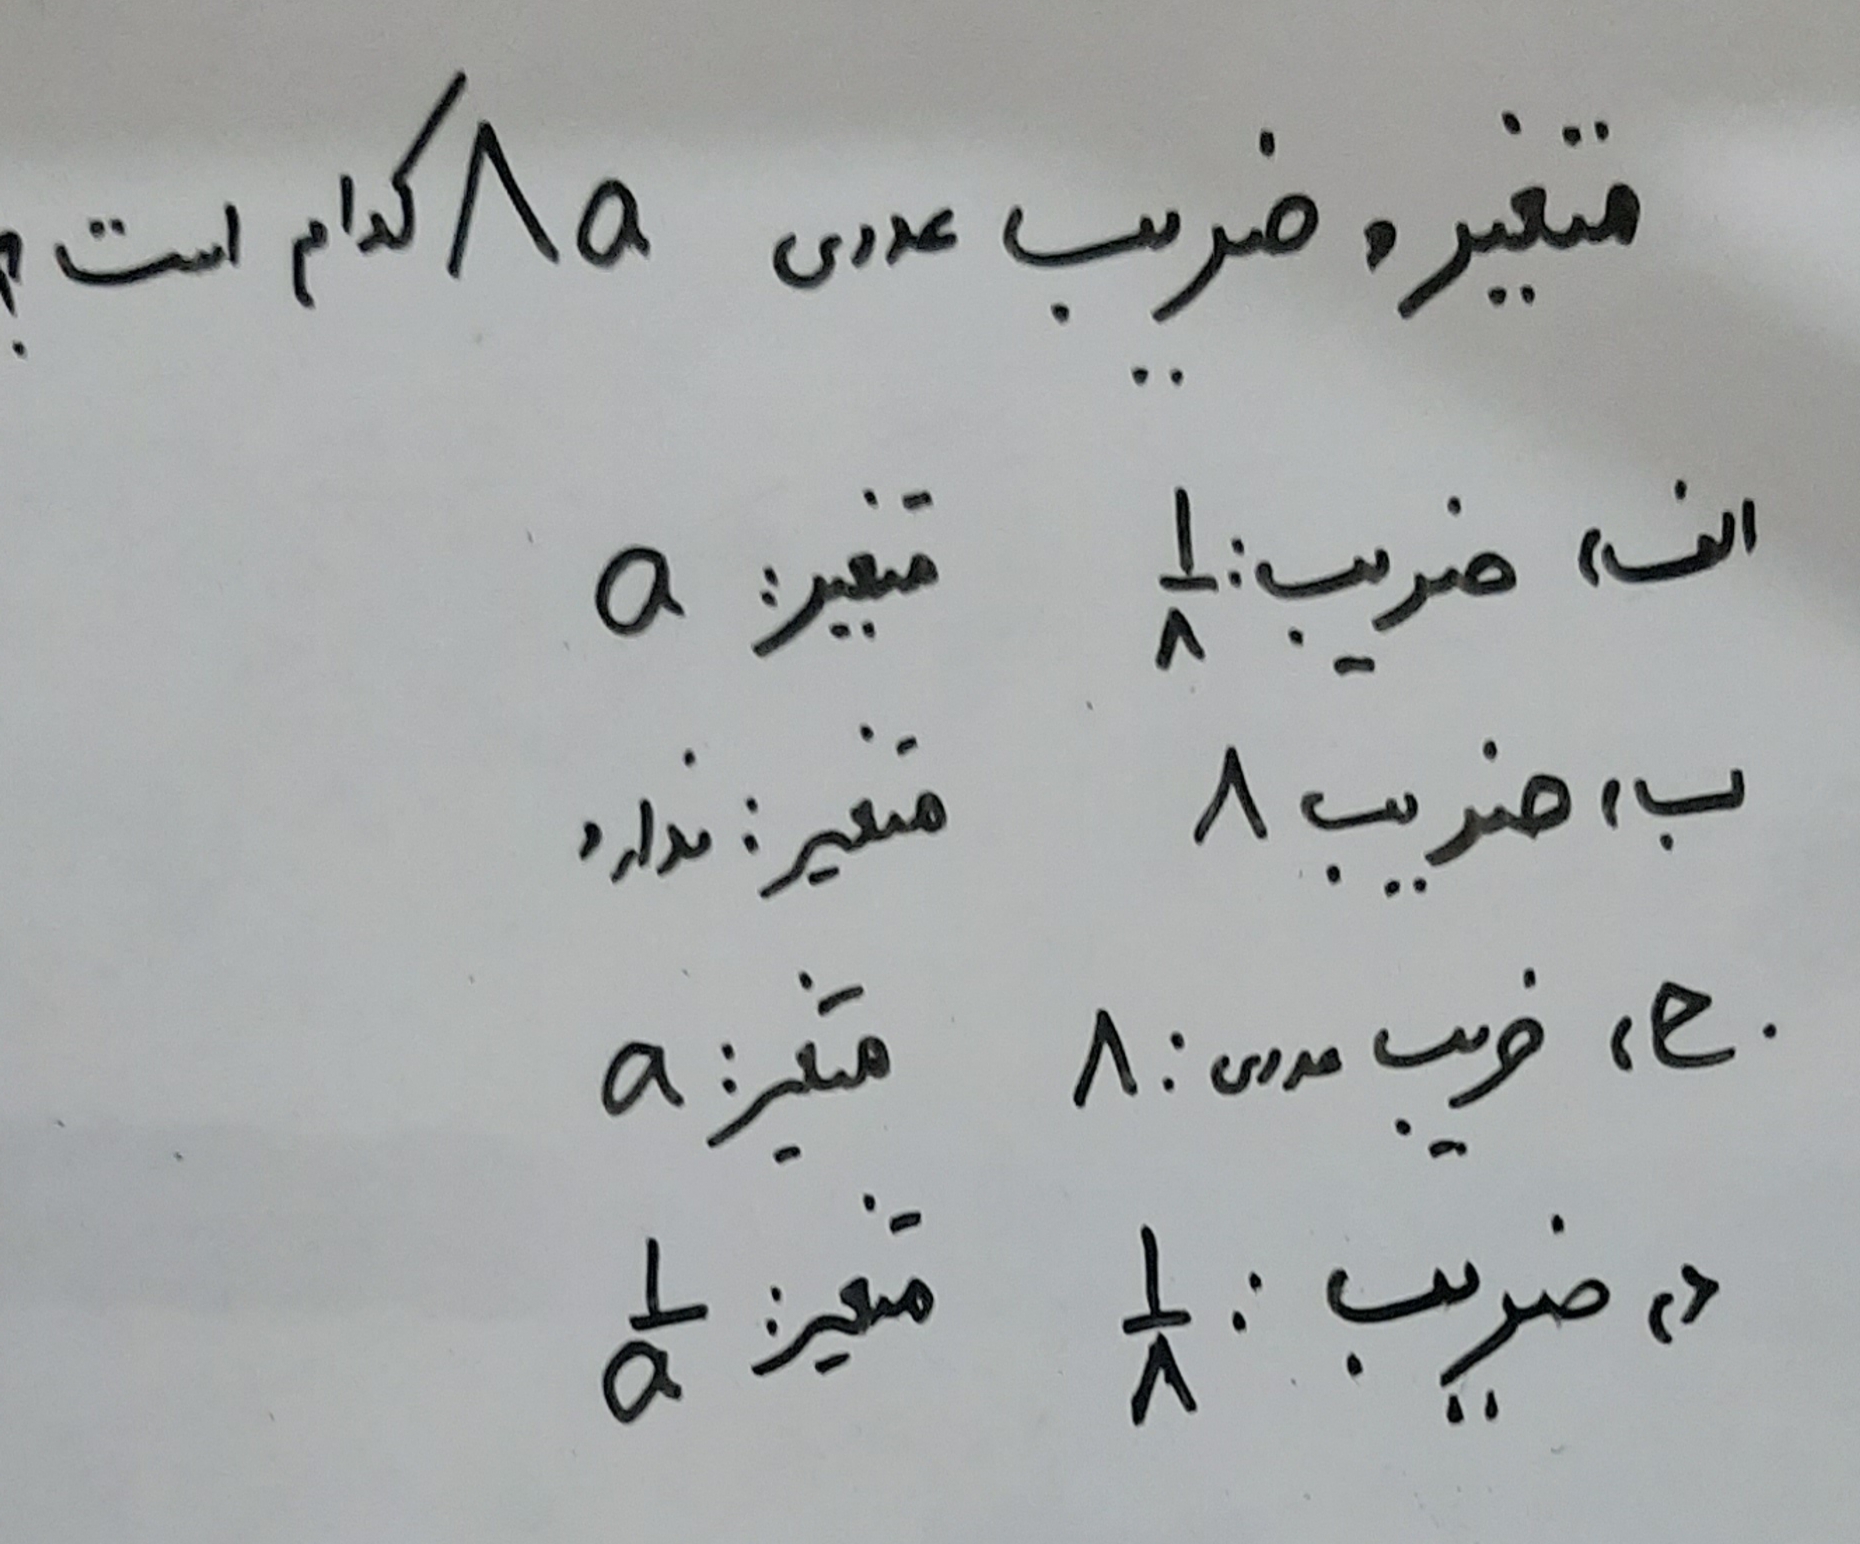 متغیر و ضریب عددی ۸a کدام است؟
الف) ضریب: ۱/۸ متغیر: a
ب) ضریب ۸ متغیر: ندارد
ج) ضریب عددی: ۸ متغیر: a
د) ضریب: ۱/۸ متغیر: ۱/a